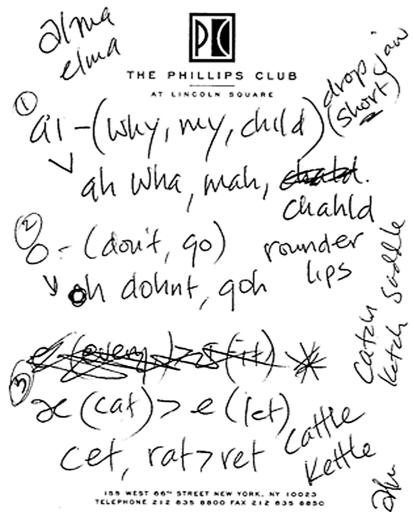 alma
elma
PC
THE PHILLIPS CLUB
AT LINCOLN SQUARE
drop jaw
(short)
① ai - (why, my, child)
ah wha, mah, chald.
chahld
② o - (don't, go)
rounder
lips
oh dohnt, goh
Catch
ketch saddle
③ æ (cat) > e (let)
cet, rat > ret
Cattle
kettle
155 WEST 66TH STREET NEW YORK, NY 10023
TELEPHONE 212 835 8800 FAX 212 835 8850